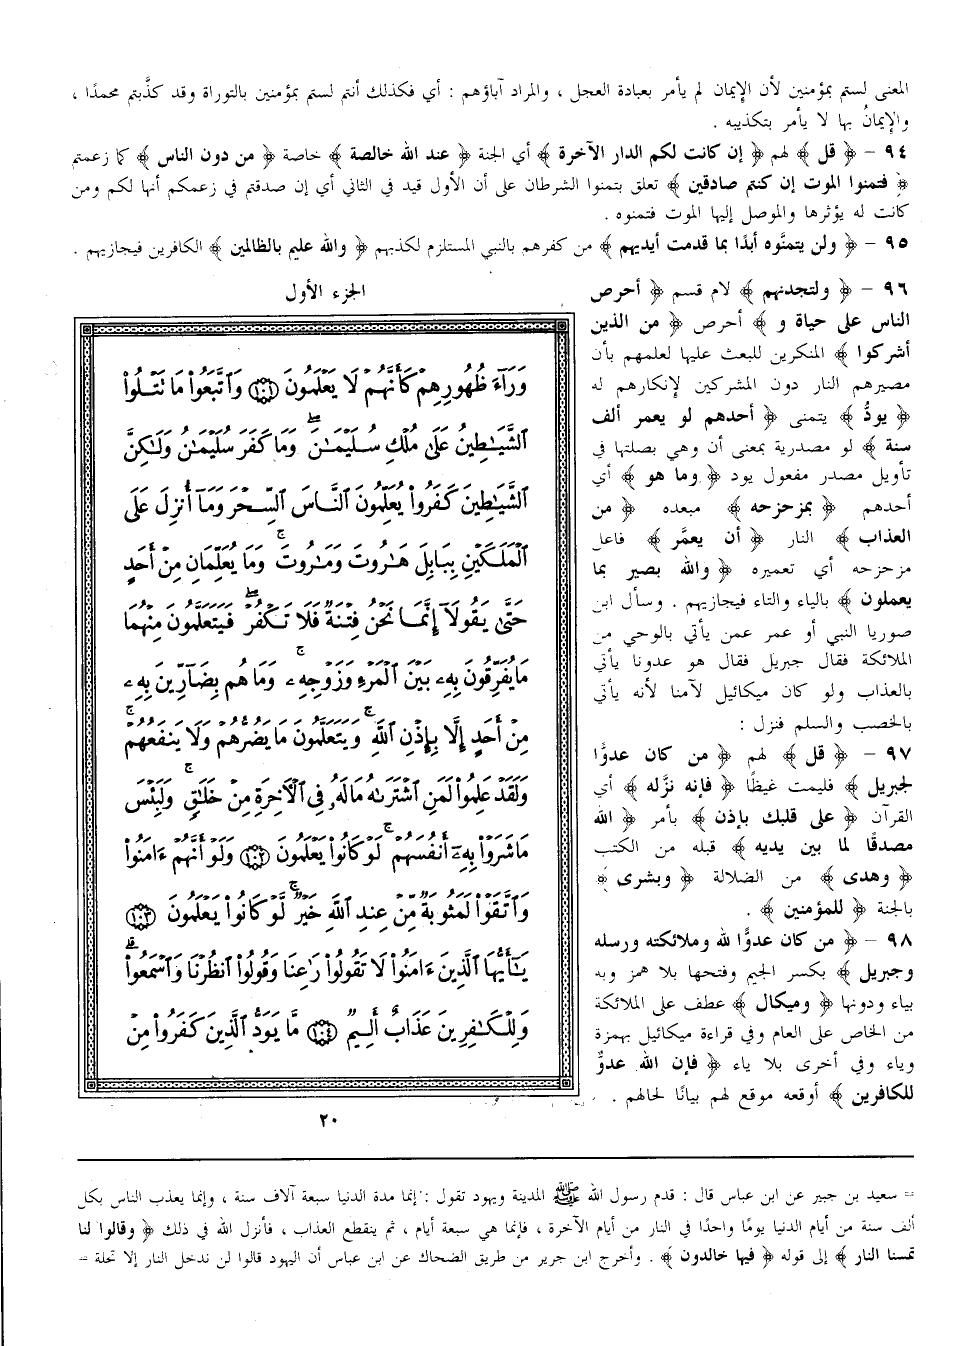 المعنى لستم بمؤمنين لأن الإيمان لم يأمر بعبادة العجل ، والمراد آباؤهم : أي فكذلك أنتم لستم بمؤمنين بالتوراة وقد كذَّبتم محمدًا ،
والإيمانُ بها لا يأمر بتكذيبه .
٩٤ – ﴿ قل ﴾ لهم ﴿ إن كانت لكم الدار الآخرة ﴾ أي الجنة ﴿ عند الله خالصة ﴾ خاصة ﴿ من دون الناس ﴾ كما زعمتم
﴿ فتمنوا الموت إن كنتم صادقين ﴾ تعلق بتمنوا الشرطان على أن الأول قيد في الثاني أي إن صدقتم في زعمكم أنها لكم ومن
كانت له يؤثرها والموصل إليها الموت فتمنوه .
٩٥ – ﴿ ولن يتمنَّوه أبدًا بما قدمت أيديهم ﴾ من كفرهم بالنبي المستلزم لكذبهم ﴿ والله عليم بالظالمين ﴾ الكافرين فيجازيهم .
٩٦ – ﴿ ولتجدنهم ﴾ لام قسم ﴿ أحرص
الناس على حياة و ﴾ أحرص ﴿ من الذين
أشركوا ﴾ المنكرين للبعث عليها لعلمهم بأن
مصيرهم النار دون المشركين لإنكارهم له
﴿ يودُّ ﴾ يتمنى ﴿ أحدهم لو يعمر ألف
سنة ﴾ لو مصدرية بمعنى أن وهي بصلتها في
تأويل مصدر مفعول يود ﴿ وما هو ﴾ أي
أحدهم ﴿ بمزحزحه ﴾ مبعده ﴿ من
العذاب ﴾ النار ﴿ أن يعمَّر ﴾ فاعل
مزحزحه أي تعميره ﴿ والله بصير بما
يعملون ﴾ بالياء والتاء فيجازيهم . وسأل ابن
صوريا النبي أو عمر عمن يأتي بالوحي من
الملائكة فقال جبريل فقال هو عدونا يأتي
بالعذاب ولو كان ميكائيل لآمنا لأنه يأتي
بالخصب والسلم فنزل :
٩٧ – ﴿ قل ﴾ لهم ﴿ من كان عدوًّا
لجبريل ﴾ فليمت غيظًا ﴿ فإنه نزَّله ﴾ أي
القرآن ﴿ على قلبك بإذن ﴾ بأمر ﴿ الله
مصدقًا لما بين يديه ﴾ قبله من الكتب
﴿ وهدى ﴾ من الضلالة ﴿ وبشرى ﴾
بالجنة ﴿ للمؤمنين ﴾ .
٩٨ – ﴿ من كان عدوًّا لله وملائكته ورسله
وجبريل ﴾ بكسر الجيم وفتحها بلا همز وبه
بياء ودونها ﴿ وميكال ﴾ عطف على الملائكة
من الخاص على العام وفي قراءة ميكائيل بهمزة
وياء وفي أخرى بلا ياء ﴿ فإن الله عدوٌّ
للكافرين ﴾ أوقعه موقع لهم بيانًا لحالهم .
الجزء الأول
وَرَآءَ ظُهُورِهِمْ كَأَنَّهُمْ لَا يَعْلَمُونَ ﴿١٠١﴾ وَٱتَّبَعُوا۟ مَا تَتْلُوا۟
ٱلشَّيَـٰطِينُ عَلَىٰ مُلْكِ سُلَيْمَـٰنَ ۖ وَمَا كَفَرَ سُلَيْمَـٰنُ وَلَـٰكِنَّ
ٱلشَّيَـٰطِينَ كَفَرُوا۟ يُعَلِّمُونَ ٱلنَّاسَ ٱلسِّحْرَ وَمَآ أُنزِلَ عَلَى
ٱلْمَلَكَيْنِ بِبَابِلَ هَـٰرُوتَ وَمَـٰرُوتَ ۚ وَمَا يُعَلِّمَانِ مِنْ أَحَدٍ
حَتَّىٰ يَقُولَآ إِنَّمَا نَحْنُ فِتْنَةٌ فَلَا تَكْفُرْ ۖ فَيَتَعَلَّمُونَ مِنْهُمَا
مَا يُفَرِّقُونَ بِهِۦ بَيْنَ ٱلْمَرْءِ وَزَوْجِهِۦ ۚ وَمَا هُم بِضَآرِّينَ بِهِۦ
مِنْ أَحَدٍ إِلَّا بِإِذْنِ ٱللَّهِ ۚ وَيَتَعَلَّمُونَ مَا يَضُرُّهُمْ وَلَا يَنفَعُهُمْ ۚ
وَلَقَدْ عَلِمُوا۟ لَمَنِ ٱشْتَرَىٰهُ مَا لَهُۥ فِى ٱلْـَٔاخِرَةِ مِنْ خَلَـٰقٍ ۚ وَلَبِئْسَ
مَا شَرَوْا۟ بِهِۦٓ أَنفُسَهُمْ ۚ لَوْ كَانُوا۟ يَعْلَمُونَ ﴿١٠٢﴾ وَلَوْ أَنَّهُمْ ءَامَنُوا۟
وَٱتَّقَوْا۟ لَمَثُوبَةٌ مِّنْ عِندِ ٱللَّهِ خَيْرٌ ۚ لَّوْ كَانُوا۟ يَعْلَمُونَ ﴿١٠٣﴾
يَـٰٓأَيُّهَا ٱلَّذِينَ ءَامَنُوا۟ لَا تَقُولُوا۟ رَٰعِنَا وَقُولُوا۟ ٱنظُرْنَا وَٱسْمَعُوا۟ ۗ
وَلِلْكَـٰفِرِينَ عَذَابٌ أَلِيمٌ ﴿١٠٤﴾ مَّا يَوَدُّ ٱلَّذِينَ كَفَرُوا۟ مِنْ
٢٠
= سعيد بن جبير عن ابن عباس قال : قدم رسول الله ﷺ المدينة ويهود تقول : إنما مدة الدنيا سبعة آلاف سنة ، وإنما يعذب الناس بكل
ألف سنة من أيام الدنيا يومًا واحدًا في النار من أيام الآخرة ، فإنما هي سبعة أيام ، ثم ينقطع العذاب ، فأنزل الله في ذلك ﴿ وقالوا لنا
تمسنا النار ﴾ إلى قوله ﴿ فيها خالدون ﴾ . وأخرج ابن جرير من طريق الضحاك عن ابن عباس أن اليهود قالوا لن ندخل النار إلا تحلة =